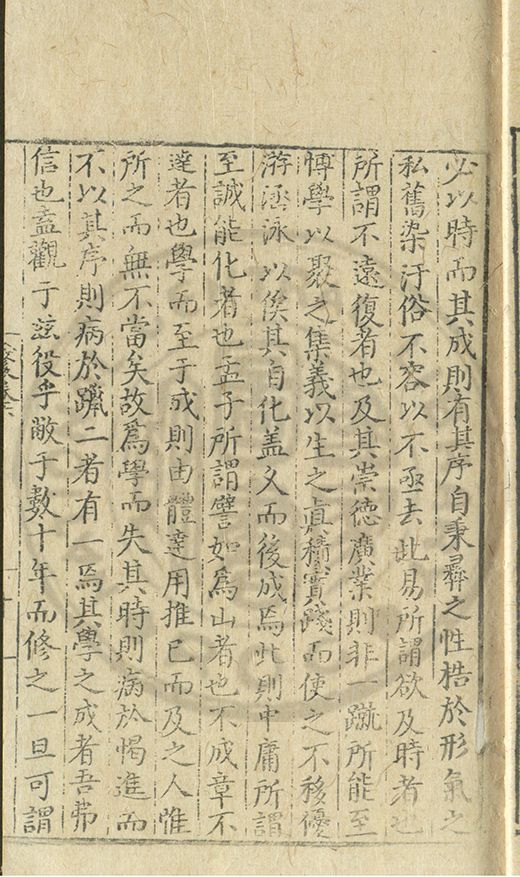 必以時而其成則有其序自秉彛之性梏於形氣之
私舊染汙俗不容以不亟去此易所謂欲及時者也
所謂不遠復者也及其崇德廣業則非一蹴所能至
博學以聚之集義以生之真積實踐而使之不移優
游涵泳以俟其自化盖久而後成焉此則中庸所謂
至誠能化者也孟子所謂譬如爲山者也不成章不
達者也學而至于成則由體達用推己而及之人惟
所之而無不當矣故爲學而失其時則病於愒進而
不以其序則病於躐二者有一焉其學之成者吾弗
信也盍觀于玆役乎敝于數十年而修之一旦可謂